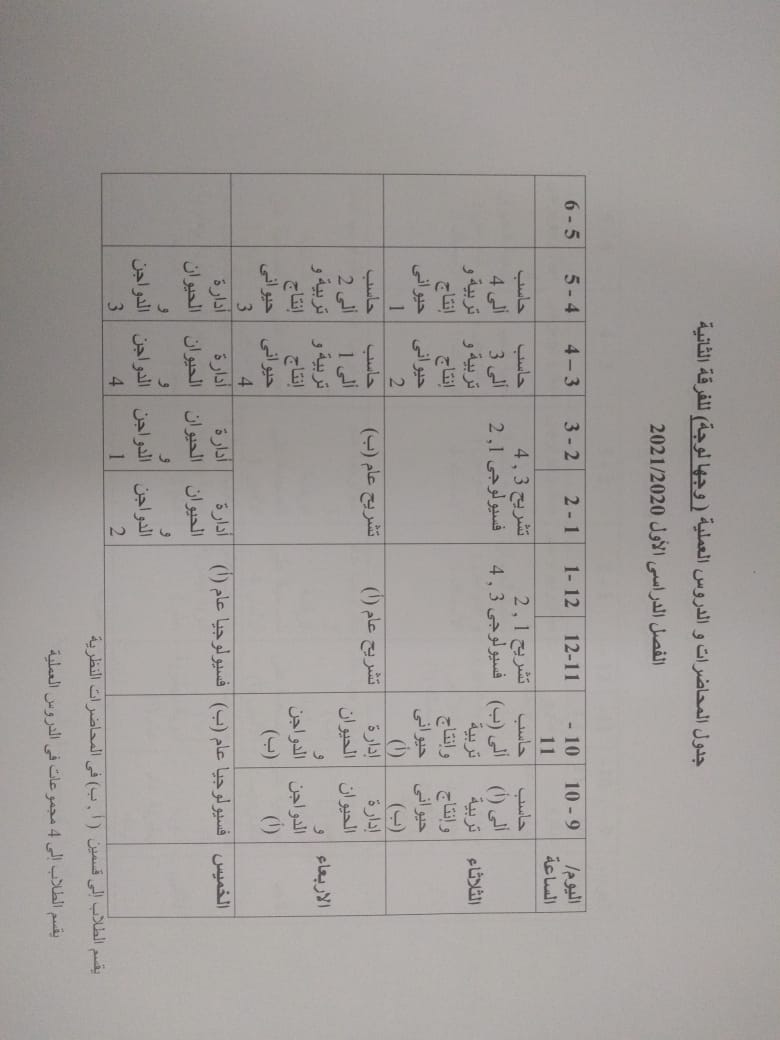 جدول المحاضرات و الدروس العملية ( وجها لوجة) للفرقة الثانية
الفصل الدراسى الأول 2021/2020
اليوم/ الساعة
10 - 9
- 10 11
12-11
1- 12
2 - 1
3 - 2
4 – 3
5 - 4
6 - 5
الثلاثاء
حاسب ألى (أ) تربية وإنتاج حيوانى (ب)
حاسب ألى (ب) تربية وإنتاج حيوانى (أ)
تشريح 1 , 2
فسيولوجى 3 , 4
تشريح 3 , 4
فسيولوجى 1, 2
حاسب ألى 3 تربية و إنتاج حيوانى 2
حاسب ألى 4 تربية و إنتاج حيوانى 1
الاربعاء
إدارة الحيوان و الدواجن (أ)
إدارة الحيوان و الدواجن (ب)
تشريح عام (أ)
تشريح عام (ب)
حاسب ألى 1 تربية و إنتاج حيوانى 4
حاسب ألى 2 تربية و إنتاج حيوانى 3
الخميس
فسيولوجيا عام (ب)
فسيولوجيا عام (أ)
أدارة الحيوان و الدواجن 2
أدارة الحيوان و الدواجن 1
أدارة الحيوان و الدواجن 4
أدارة الحيوان و الدواجن 3
يقسم الطلاب إلى قسمين ( أ , ب) فى المحاضرات النظرية
يقسم الطلاب إلى 4 مجموعات فى الدروس العملية